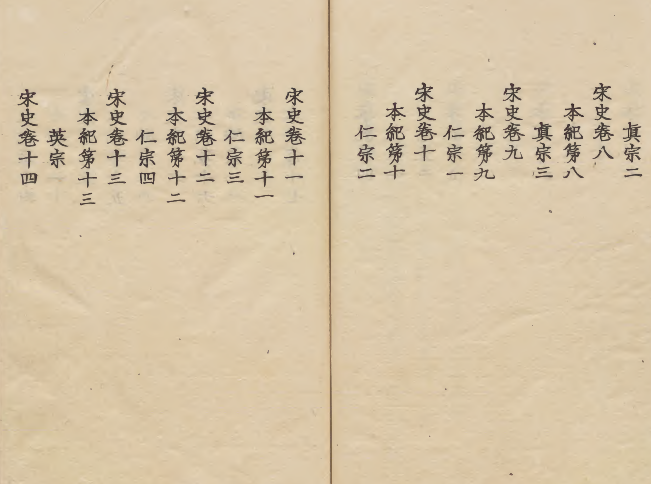 真宗二
宋史卷八
本紀第八
真宗三
宋史卷九
本紀第九
仁宗一
宋史卷十
本紀第十
仁宗二
宋史卷十一
本紀第十一
仁宗三
宋史卷十二
本紀第十二
仁宗四
宋史卷十三
本紀第十三
英宗
宋史卷十四